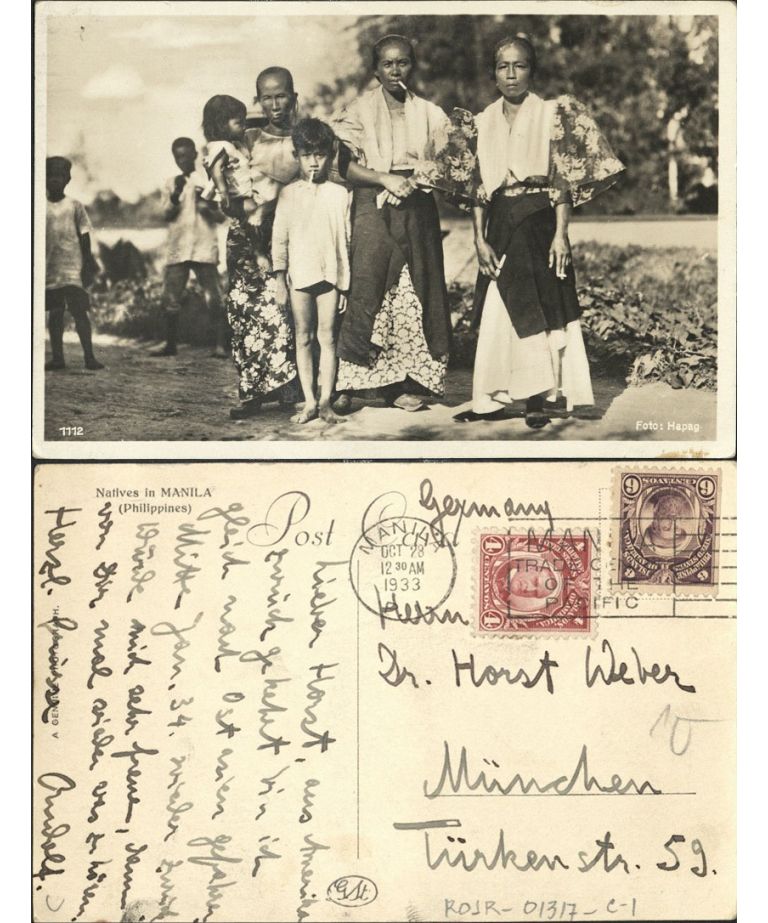 1112
Foto: Hapag
Natives in MANILA
(Philippines)
Post Card
Germany
MANILA
OCT 28
12 30 AM
1933
P.I.
MANILA
TRADE CENTER
OF THE
PACIFIC
Herrn
Dr. Horst Weber
München
Türkenstr. 59.
Lieber Horst, aus Amerika
zurück gekehrt bin ich
gleich nach Ostasien gefahren
Mitte Jan. 34. wieder zurück
Würde mich sehr freuen, dann
von Dir mal wieder was zu hören.
Herzl. Grüsse
Rudolf.
ROJR-01317-C-1